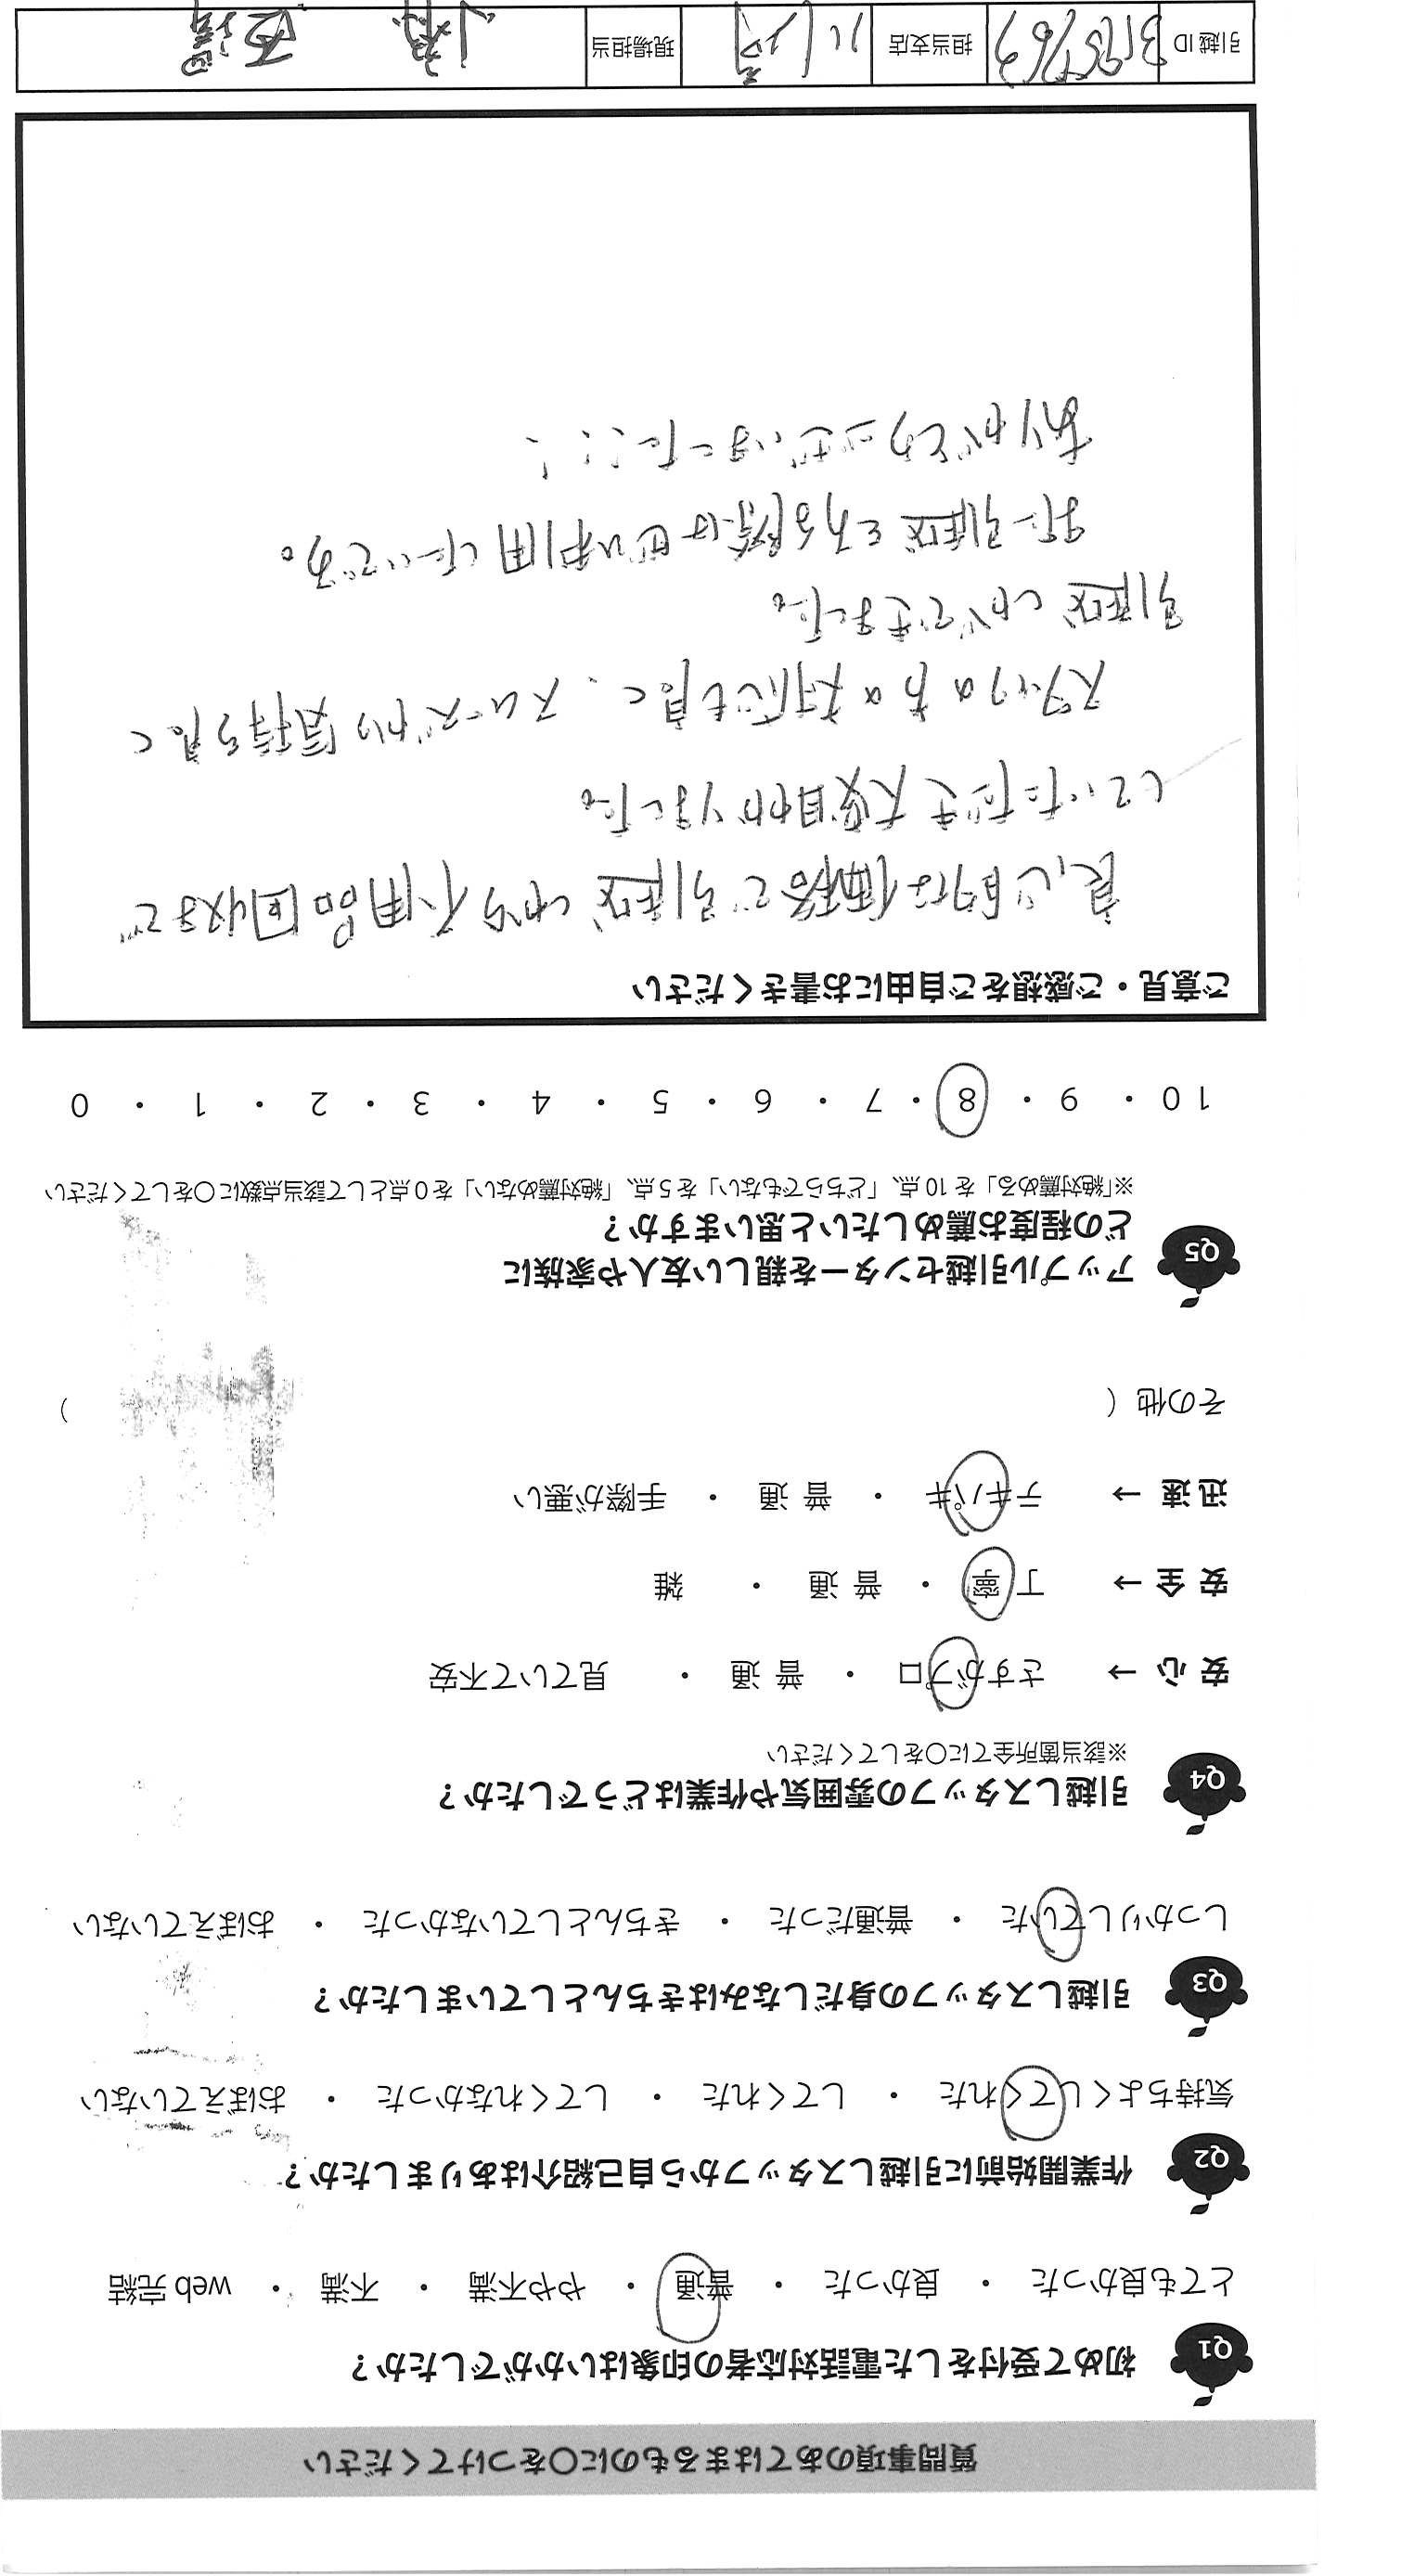 質問事項のあてはまるものに○をつけてください
Q1 初めて受付をした電話対応者の印象はいかがでしたか？
とても良かった ・ 良かった ・ 普通 ・ やや不満 ・ 不満 ・ web 完結
Q2 作業開始前に引越しスタッフから自己紹介はありましたか？
気持ちよくしてくれた ・ してくれた ・ してくれなかった ・ おぼえていない
Q3 引越しスタッフの身だしなみはきちんとしていましたか？
しっかりしていた ・ 普通だった ・ きちんとしていなかった ・ おぼえていない
Q4 引越しスタッフの雰囲気や作業はどうでしたか？
※該当箇所全てに○をしてください
安 心 → さすがプロ ・ 普 通 ・ 見ていて不安
安 全 → 丁 寧 ・ 普 通 ・ 雑
迅 速 → テキパキ ・ 普 通 ・ 手際が悪い
その他（ ）
Q5 アップル引越センターを親しい友人や家族に
どの程度お薦めしたいと思いますか？
※「絶対薦める」を 10 点、「どちらでもない」を 5 点、「絶対薦めない」を 0 点として該当点数に○をしてください
10 ・ 9 ・ 8 ・ 7 ・ 6 ・ 5 ・ 4 ・ 3 ・ 2 ・ 1 ・ 0
ご意見・ご感想をご自由にお書きください
良心的な価格で引越しから不用品回収まで
していただき大変助かりました。
スタッフの方の対応も良く、スムーズかつ気持ち良く
引越しができました。
また引越をする際はぜひ利用したいです。
ありがとうございました！！
引越 ID 担当支店 現場担当